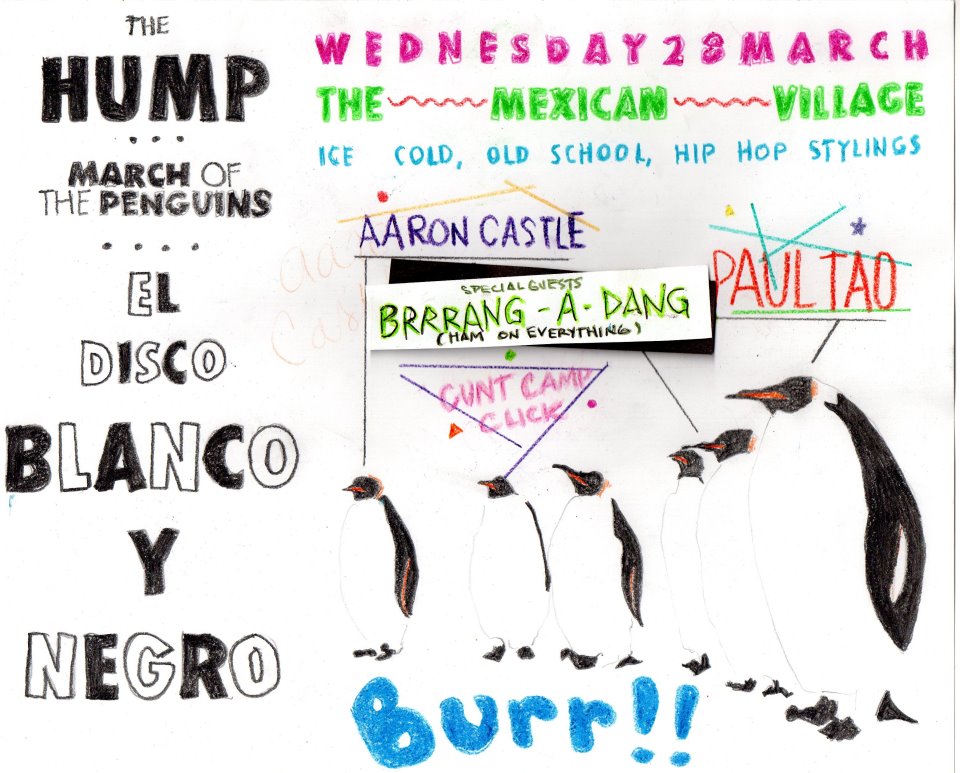 THE
HUMP
...
MARCH OF
THE PENGUINS
....
EL
DISCO
BLANCO
Y
NEGRO
WEDNESDAY 28 MARCH
THE MEXICAN VILLAGE
ICE COLD, OLD SCHOOL, HIP HOP STYLINGS
AARON CASTLE
PAUL TAO
SPECIAL GUESTS
BRRRANG-A-DANG
(HAM ON EVERYTHING)
CUNT CAMP
CLICK
Burr!!